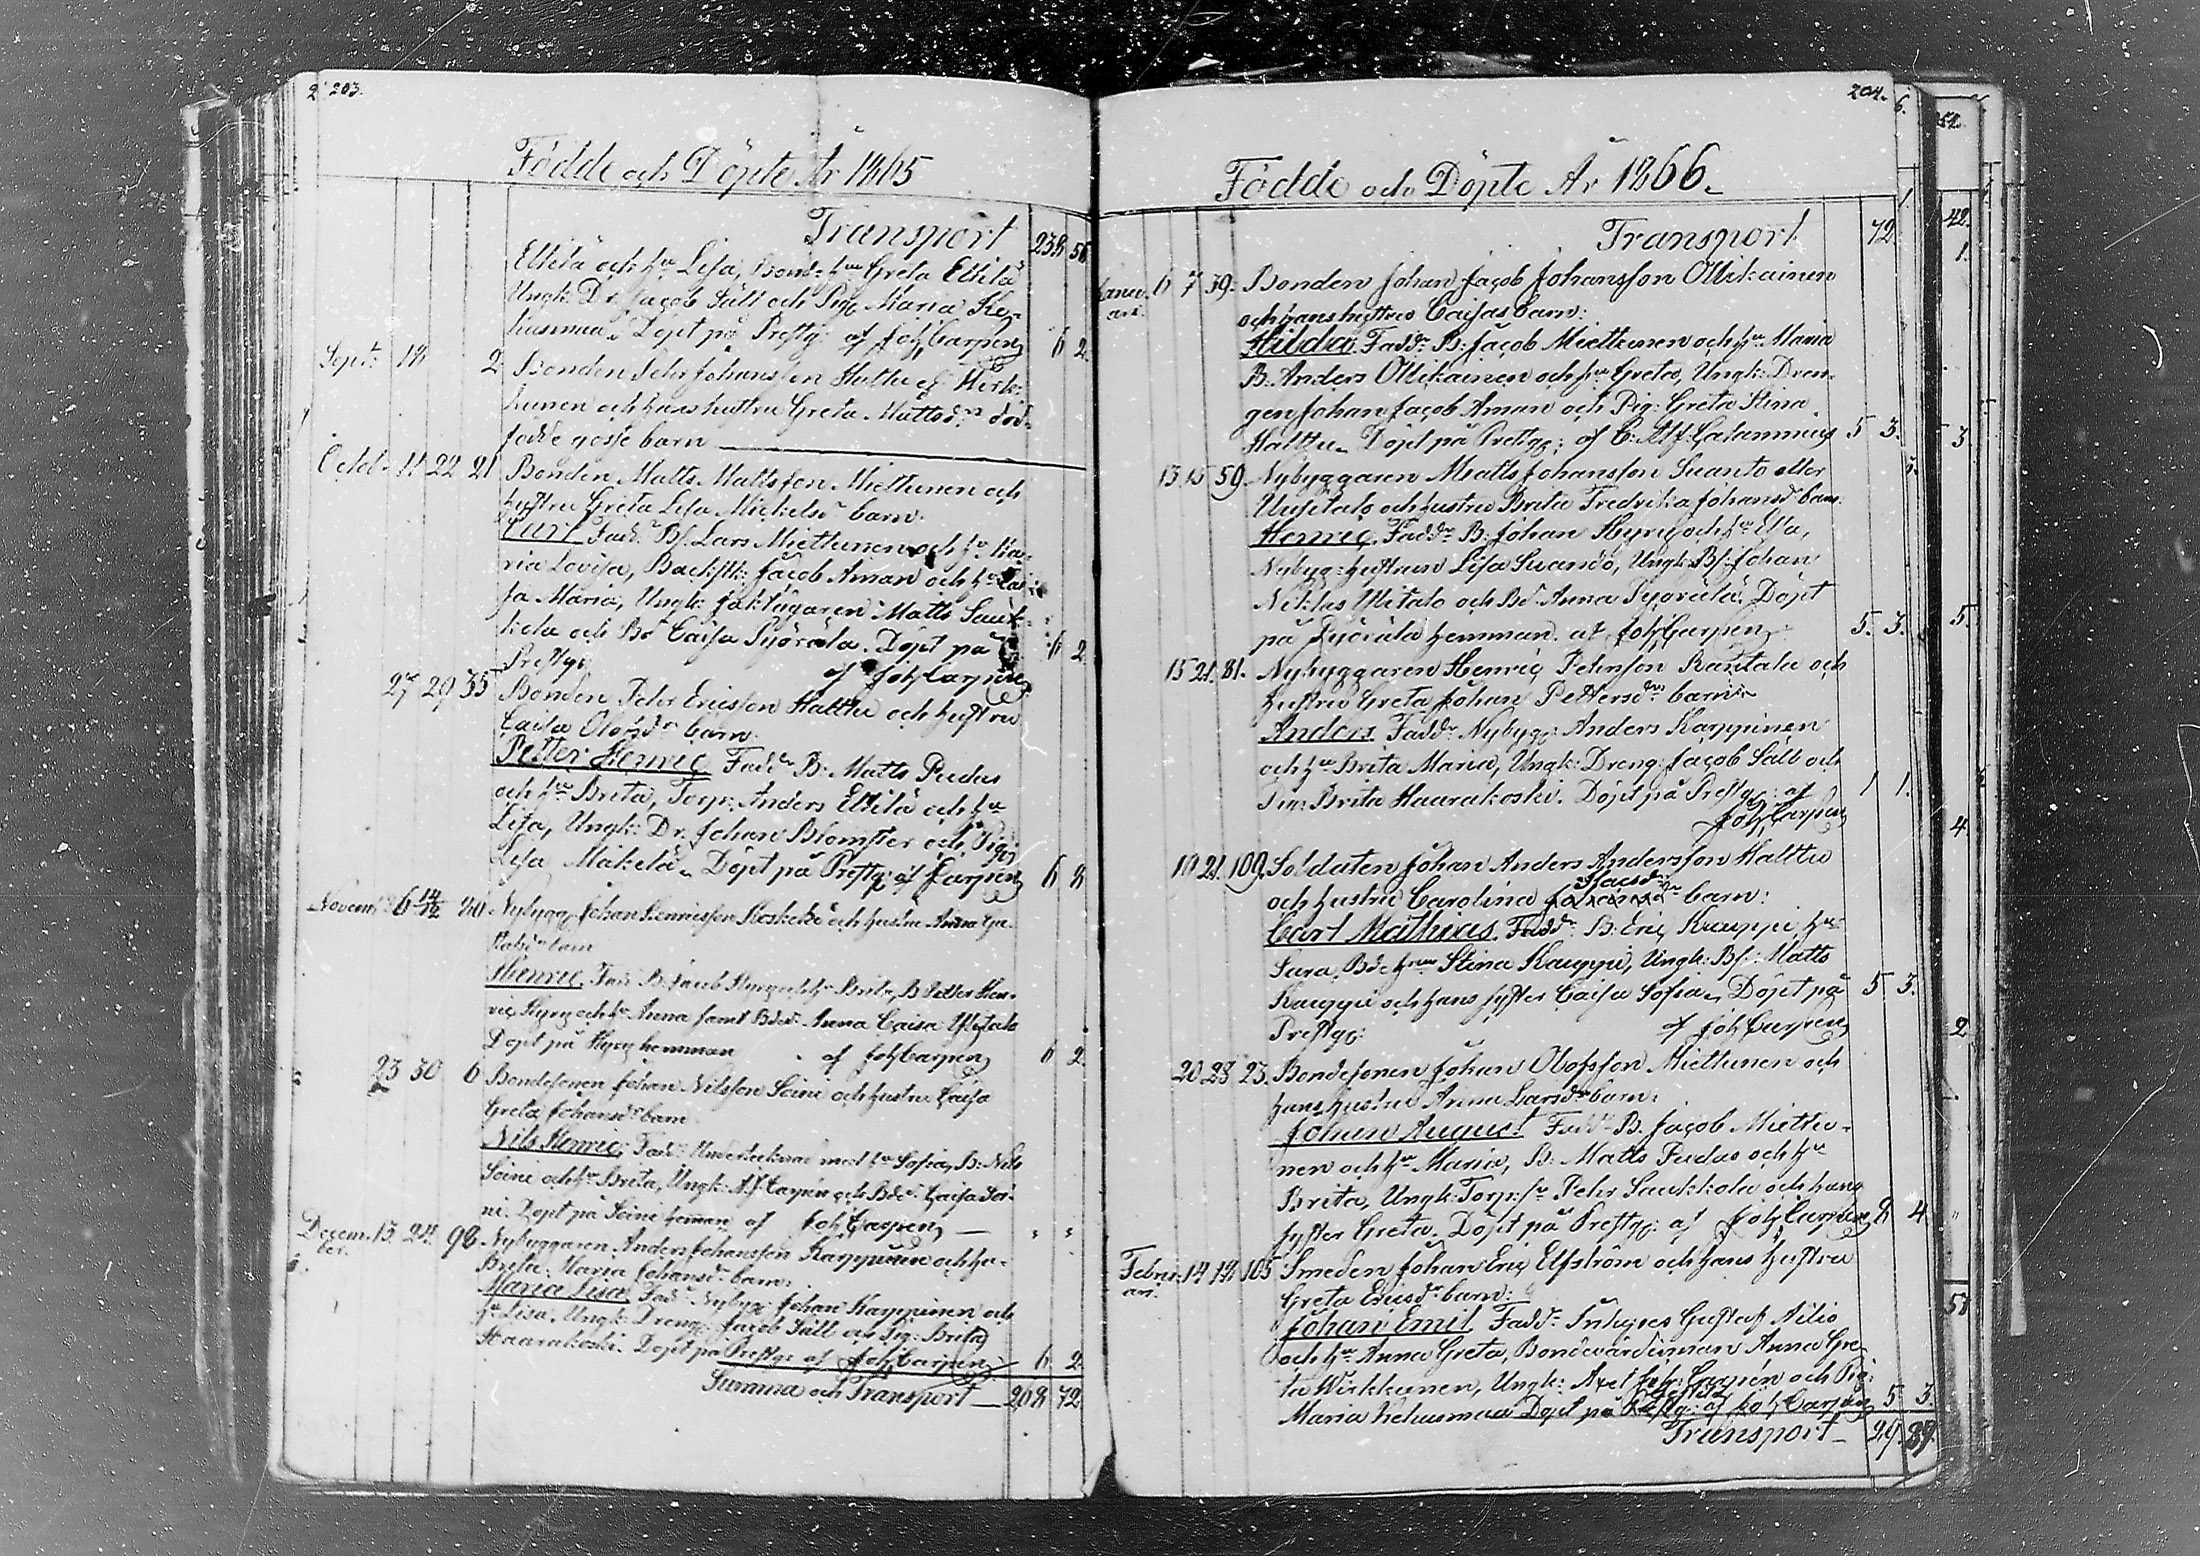 203.
Födde och Döpte År 1865
Transport 238 56
Ettilä och hu Lisa, Bond: hu Greta Ettilä
Ungk: Dr. Jacob Fält och Pig. Maria Ke-
husmaa. Döpt på Prestg: af Joh Carpen 6 2
Sept: 18 2 Bonden Pehr Johansson Halttu el: Kerk-
kunen och hans hustru Greta Mattsdr död-
födde gosse barn
Octob: 11 22 21 Bonden Matts Mattsson Miettunen och
hustru Greta Lisa Mickelsdr barn.
Carl Fadd: Bs. Lars Miettunen och hu Ma-
ria Lovisa, Backstk: Jacob Aman och hu Cai-
sa Maria, Ungk: Matts Sauk-
kola och Bd Caisa Pyörälä. Döpt på
Prestg: af Joh Carpen 6 2
27 29 35 Bonden Pehr Ericsson Halttu och hustru
Caisa Olofsdr barn.
Petter Henric Fadd: B: Matts Pudas
och hu Brita, Torp: Anders Ettilä och hu
Lisa, Ungk: Dr. Johan Blomster och Pig:
Lisa Mäkelä. Döpt på Prestg: af Carpen 6 8
Novem: 6 80 Nybygg: Johan Henricsson och hustru Anna
barn
Henric. Fad: B: Jacob Hyry och hu Brita, B Petter Hen-
ric Hyry och hu Anna samt Bdr Anna Caisa Ylitalo
Döpt på Hyry hemman af Joh Carpen 6 2
23 30 6 Bondesonen Johan Nilsson Soini och hustru Caisa
Greta Johansdr barn
Nils Henric Fad: Undertecknad med hu Sofia, B: Nils
Soini och hu Brita, Ungk: Af Carpen och Bdr Caisa Soi-
ni. Döpt på Soini heman af Joh Carpen
Decem- 13 24 98 Nybyggaren Anders Johansson Karppinen och hu-
ber. Brita Maria Johansdr barn.
Maria Lisa Fad: Nybyg: Johan Karppinen och
hu Lisa, Ungk: Dreng: Jacob Fält och Pig: Brita
Haarakoski. Döpt på Prestg: af Joh Carpen 6 2
Summa och Transport 268 72
204.
Födde och Döpte År 1866.
Transport 72
Janu- 6 7 39. Bonden Johan Jacob Johansson Ollikainen
ari. och hans hustru Caisas barn:
Hilda. Faddr B: Jacob Miettunen och hu Maria
B: Anders Ollikainen och hu Greta, Ungk: Dren-
gen Johan Jacob Aman och Pig: Greta Stina
Halttu. Döpt på Prestg: af C: Alf: Calamnius 5 3.
13 15 59. Nybyggaren Matts Johansson Suanto eller
Uusitalo och hustru Brita Fredrika Johansdr barn.
Henric. Faddr B: Johan Hyry och hu Elsa,
Nybyg: hustrun Lisa Suando, Ungk: Bs: Johan
Niklas Ylitalo och Bd: Anna Pyörälä. Döpt
på Pyörälä hemman. af Joh Carpen 5. 3.
15 21. 81. Nybyggaren Henric Pehrsson Rantala och
hustru Greta Johan Pettersdrs barn
Anders. Faddr Nybygg: Anders Karppinen
och hu Brita Maria, Ungk: Dreng: Jacob Fält och
Pig: Brita Haarakoski. Döpt på Prestg: af 1 1.
Joh Carpen
19 21. 109. Soldaten Johan Anders Andersson Halttu
Isacsdr
och hustru Carolina barn:
Carl Mathias. Faddr B: Eric Kauppi, hu
Sara, Bde hun Stina Kauppi, Ungk: Bs: Matts
Kauppi och hans syster Caisa Sofia. Döpt på 5 3.
Prestg: af Joh Carpen
20 28 23. Bondesonen Johan Olofsson Miettunen och
hans hustru Anna Larsdr barn:
Johan August Faddr B. Jacob Miettu-
nen och hu Maria, B: Matts Pudas och hu
Brita, Ungk: Torp: sn Pehr Saukkola och hans
syster Greta. Döpt på Prestg: af Joh Carpen 8 4
Febru- 14 18 105 Smeden Johan Eric Elfström och hans hustru
ari. Greta Ericsdr barn:
Johan Emil Faddr Inhyses Gustaf Nilio
och hu Anna Greta, Bondevärdinnan Anna Gre-
ta Wirkkunen, Ungk: Axel Joh: Carpén och Pig:
Maria Kehusmaa Döpt på af Joh Carpen 5 3.
Transport 29. 89.